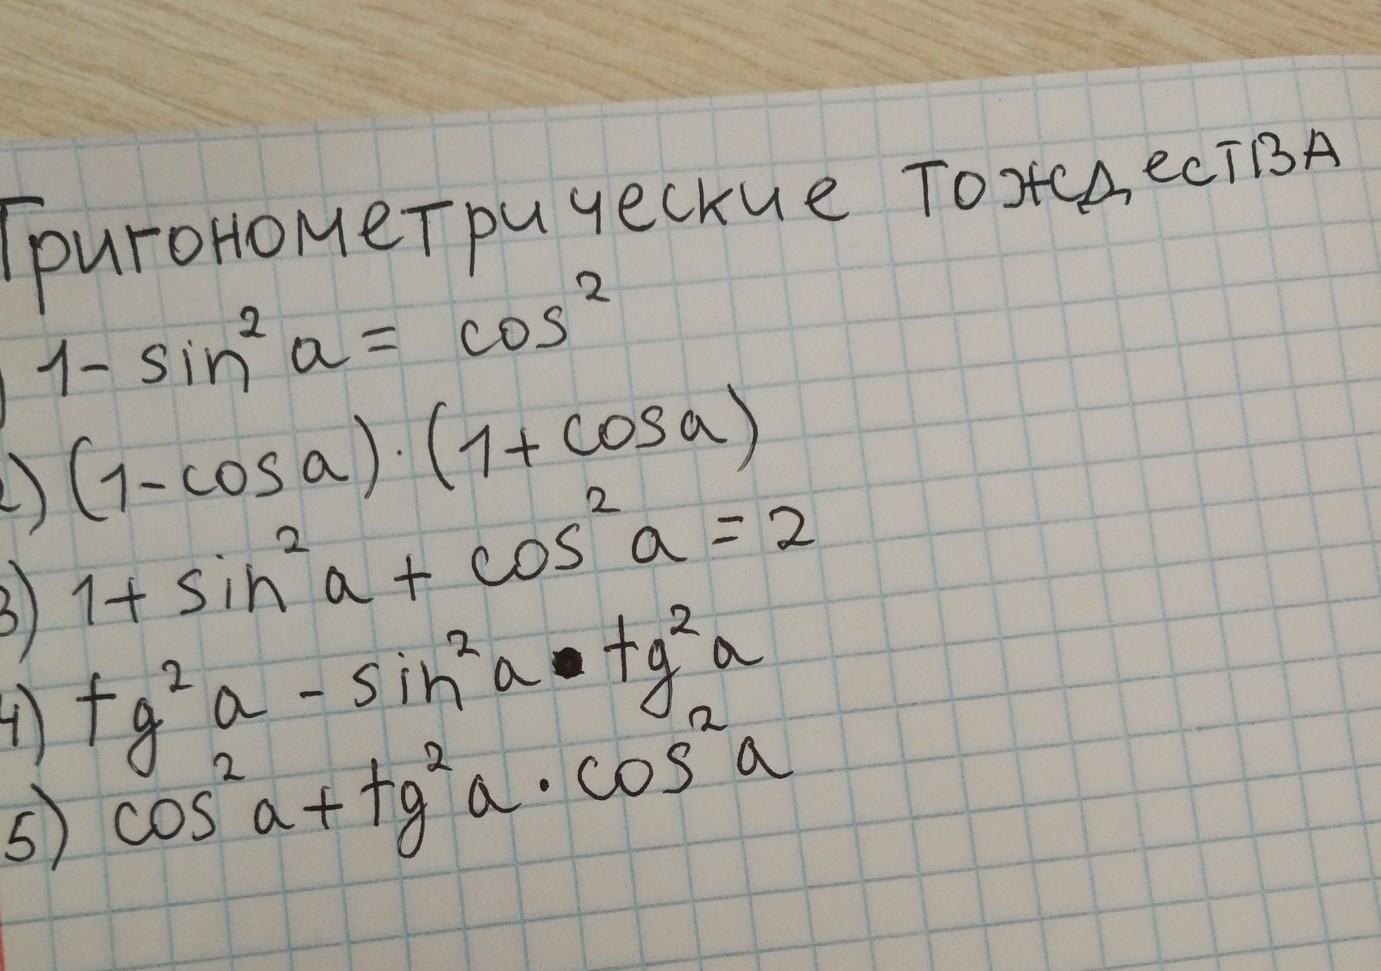 Тригонометрические тождества
) 1 - sin² a = cos²
2) (1 - cos a) · (1 + cos a)
3) 1 + sin² a + cos² a = 2
4) tg² a - sin² a · tg² a
5) cos² a + tg² a · cos² a